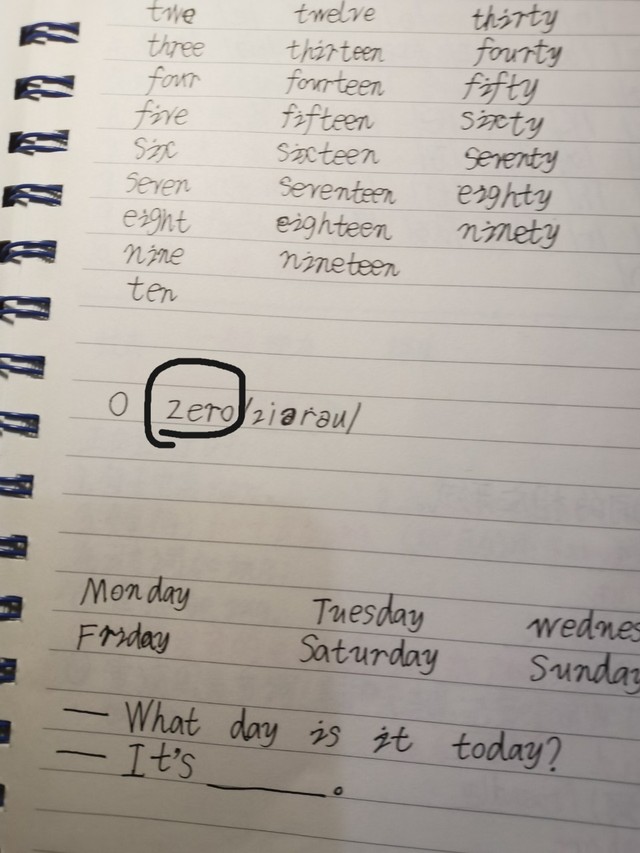 twe twelve thirty
three thirteen fourty
four fourteen fifty
five fifteen sixty
six sixteen seventy
seven seventeen eighty
eight eighteen ninety
nine nineteen
ten
0 zero /ziərəu/
Monday Tuesday Wednes
Friday Saturday Sunday
— What day is it today?
— It's ______.